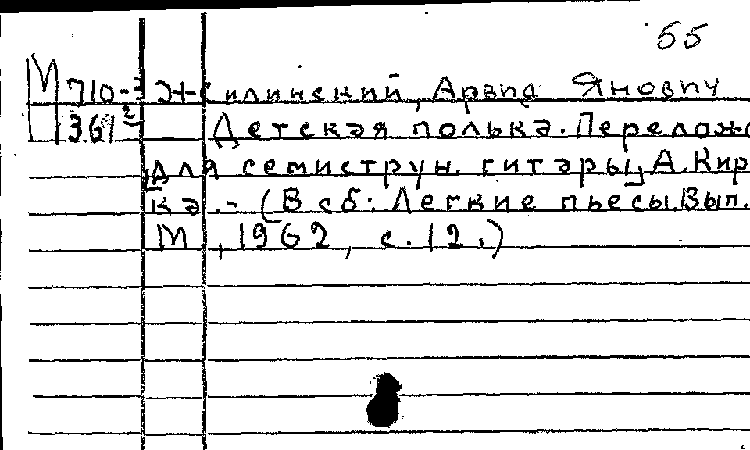 55
М 710-3 Жилинский, Арвид Янович
361² Детская полька. Перелож
для семиструн. гитары А. Кир
ка. - (В сб: Легкие пьесы. Вып.
М., 1962, с. 12.)